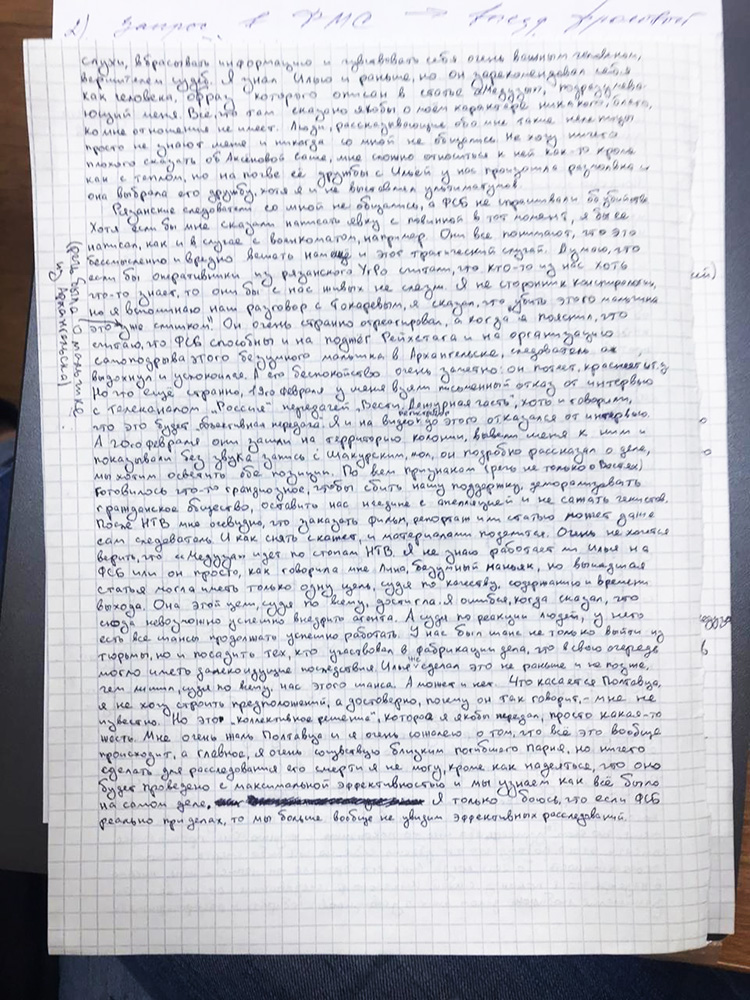 2) Запрос в ФМС → выезд
слухи, вбрасывать информацию и чувствовать себя очень важным человеком,
вершителем судеб. Я знал Илью и раньше, но он зарекомендовал себя
как человека, образ которого описан в статье "Медузы", подразумева-
ющий меня. Всё, что там сказано якобы о моём характере никакого,
ко мне отношения не имеет. Люди, рассказывающие обо мне такие
просто не знают меня и никогда со мной не общались. Не хочу ничего
плохого сказать об Аксёновой Саше, мне сложно относиться к ней как-то кроме
как с теплом, но на почве её дружбы с Ильёй у нас произошла размолвка и
она выбрала его дружбу, хотя я и не выставлял ультиматумов.
Рязанские следователи со мной не общались, а ФСБ не спрашивали об убийстве
Хотя если бы мне сказали написать явку с повинной в тот момент, я бы её
написал, как и в случае с военкоматом, например. Они все понимают, что это
бессмысленно и вредно вешать нам ещё и этот трагический случай. Думаю, что
если бы оперативники из рязанского УгРо считали, что кто-то из нас хоть
что-то знает, то они бы с нас живых не слезли. Я не сторонник конспирологии,
но я вспоминаю наш разговор с Токаревым, я сказал, что "убить этого мальчика
это уже слишком". Он очень странно отреагировал, а когда я пояснил, что
(речь была о мальчике
из Архангельска)
считаю, что ФСБ способны и на поджог Рейхстага и на организацию
самоподрыва этого безумного мальчика в Архангельске, следователь аж
выдохнул и успокоился. А его беспокойство очень заметно: он потеет, краснеет и т.д.
Но что ещё странно, 19го февраля у меня взяли письменный отказ от интервью
с телеканалом "Россия" передачей "Вести. Дежурная часть", хоть и говорили,
что это будет объективная передача. Я и на видеорегистратор до этого отказался от интервью.
А 20го февраля они зашли на территорию колонии, вывели меня к ним и
показывали без звука запись с Шакурским, мол, он подробно рассказал о деле,
мы хотим осветить обе позиции. По всем признакам (речь не только о Вестях)
готовилось что-то грандиозное, чтобы сбить нашу поддержку, деморализовать
гражданское общество, оставить нас наедине с апелляцией и не сажать чекистов.
После НТВ мне очевидно, что заказать фильм, репортаж или статью может даже
сам следователь. И как снять скажет, и материалами поделится. Очень не хочется
верить, что "Медуза" идёт по стопам НТВ. Я не знаю работает ли Илья на
ФСБ или он просто, как говорила мне Лина, безумный маньяк, но вышедшая
статья могла иметь только одну цель, судя по качеству, содержанию и времени
выхода. Она этой цели, судя по всему, достигла. Я ошибся, когда сказал, что
сюда невозможно успешно внедрить агента. А судя по реакции людей, у него
есть все шансы продолжать успешно работать. У нас был шанс не только выйти из
тюрьмы, но и посадить тех, кто участвовал в фабрикации дела, что в свою очередь
могло иметь далекоидущие последствия. Илья же сделал это не раньше и не позже,
чем лишил, судя по всему, нас этого шанса. А может и нет. Что касается Полтавца,
я не хочу строить предположений, а достоверно, почему он так говорит, - мне не
известно. Но это "коллективное решение", которое я якобы передал, просто какая-то
жесть. Мне очень жаль Полтавца и я очень сожалею о том, что всё это вообще
происходит, а главное, я очень сочувствую близким погибшего парня, но ничего
сделать для расследования его смерти я не могу, кроме как надеяться, что оно
будет проведено с максимальной эффективностью и мы узнаем как всё было
на самом деле. Я только боюсь, что если ФСБ
реально при делах, то мы больше вообще не увидим эффективных расследований.